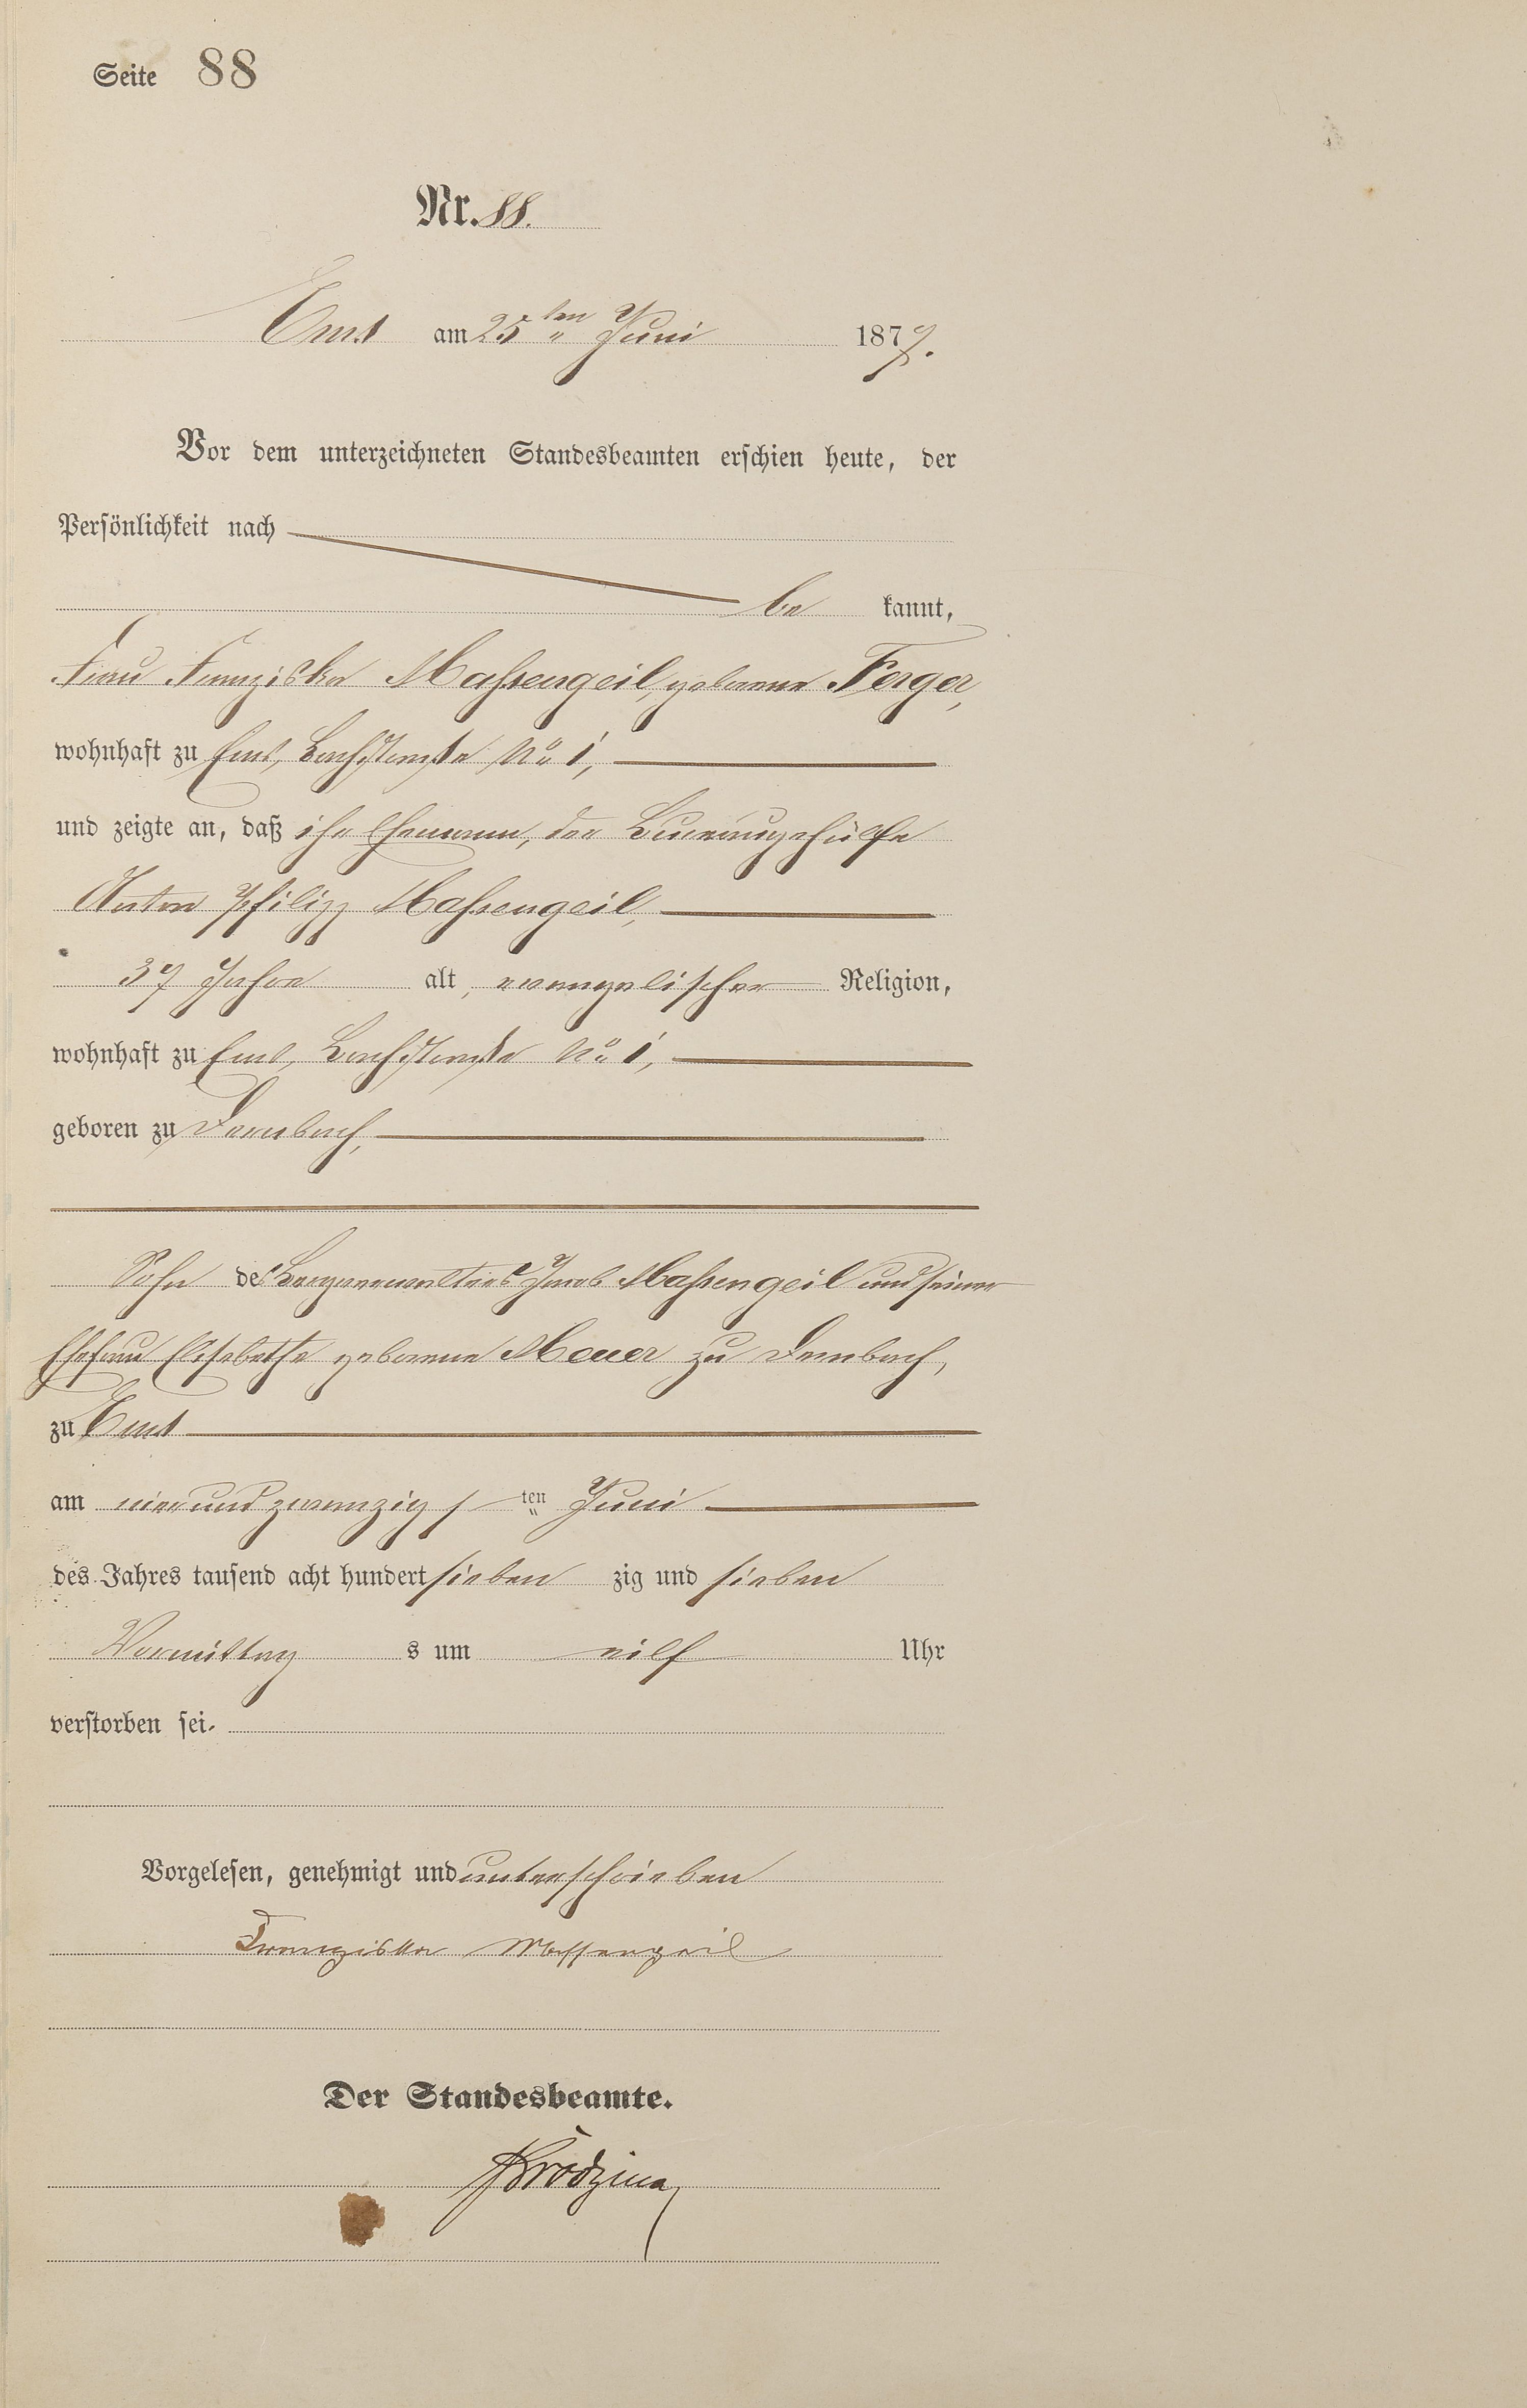 Seite 88
Nr. 88.
Ems am 25ten Juni 1877.
Vor dem unterzeichneten Standesbeamten erschien heute, der
Persönlichkeit nach
be kannt,
Frau Franziska Massengeil, geborene Ferger,
wohnhaft zu Ems, Bachstraße No 1,
und zeigte an, daß ihr Ehemann, der Bureaugehülfe
Anton Philipp Massengeil,
37 Jahre alt, evangelischer Religion,
wohnhaft zu Ems, Bachstraße No 1,
geboren zu Dernbach,
Sohn des Bergverwalters Jacob Massengeil und seiner
Ehefrau Elisabethe geborene Meuer zu Dernbach,
zu Ems
am vierundzwanzigsten Juni
des Jahres tausend acht hundert sieben zig und sieben
Vormittag s um eilf Uhr
verstorben sei.
Vorgelesen, genehmigt und unterschrieben
Franziska Massengeil
Der Standesbeamte.